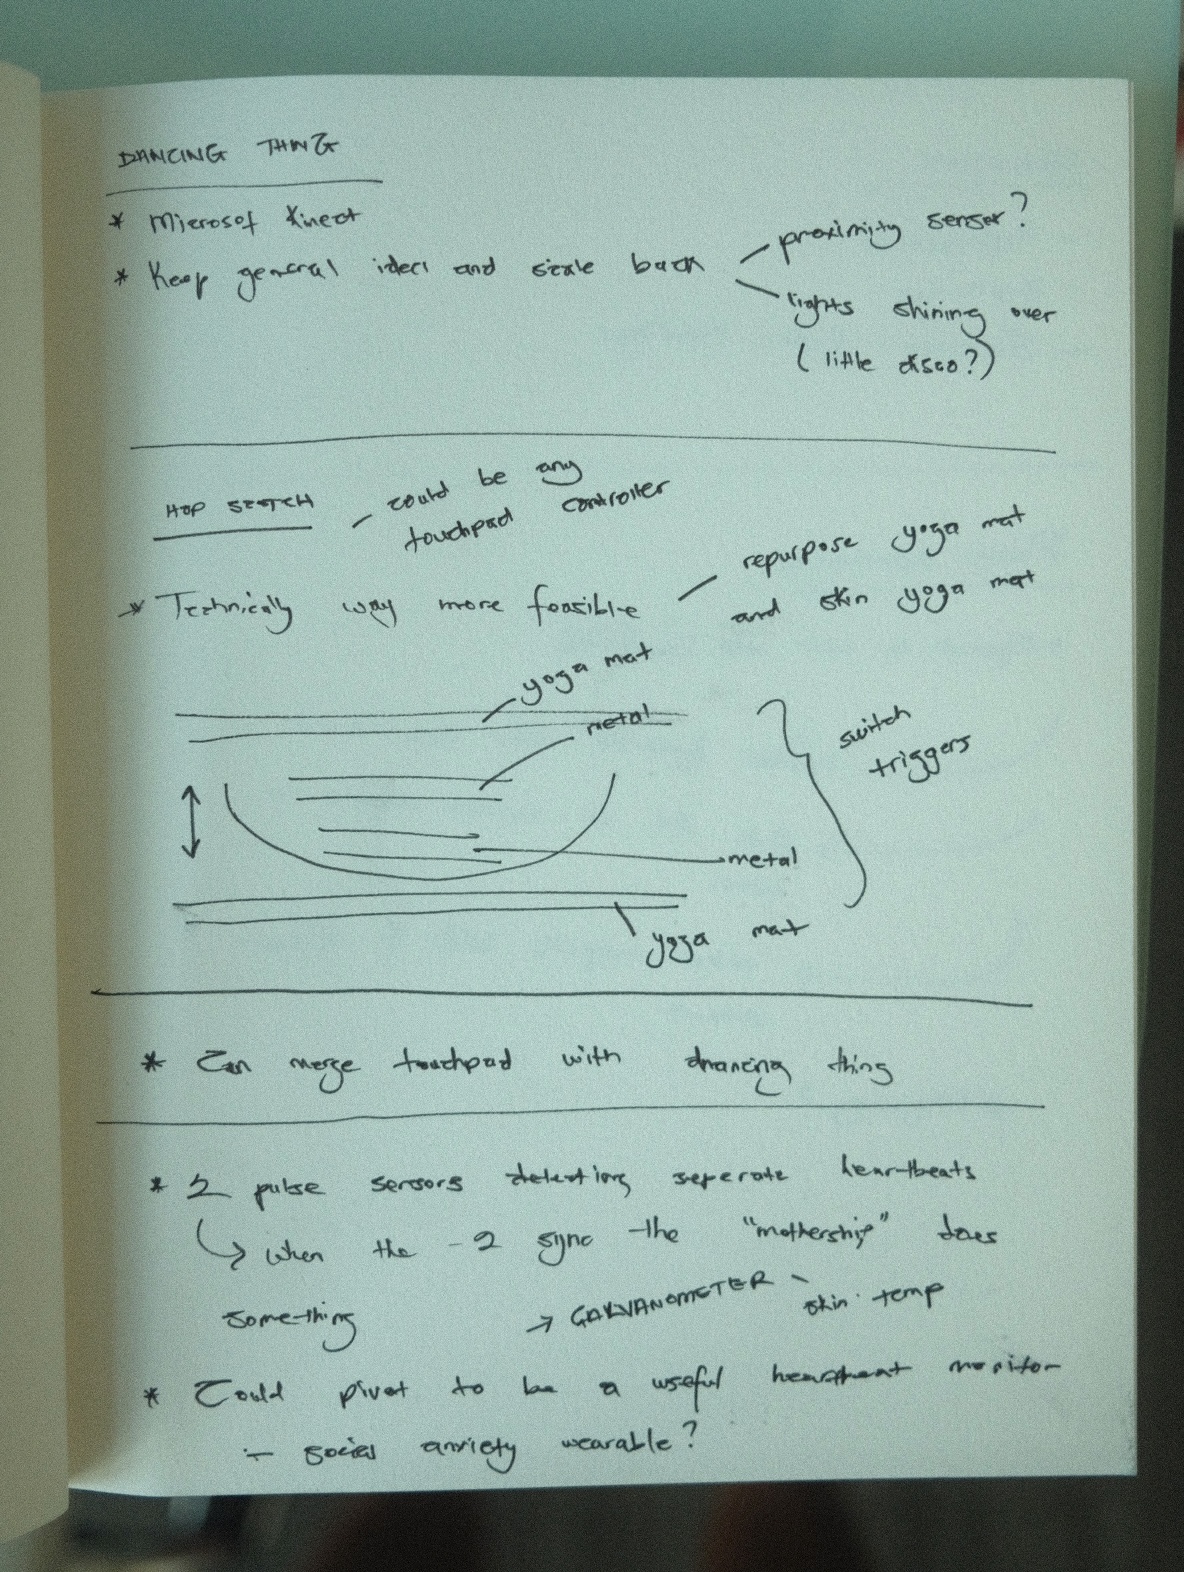 DANCING THING
* Microsof Kinect
* Keep general idea and scale back
proximity sensor?
lights shining over
(little disco?)
HOP SCOTCH
could be any
touchpad controller
* Technically way more feasible
repurpose yoga mat
and skin yoga mat
yoga mat
metal
switch
triggers
metal
yoga mat
* Can merge touchpad with dnancing thing
* 2 pulse sensors detecting seperate heartbeats
↳ when the 2 sync the "mothership" does
something
→ GALVANOMETER - skin temp
* Could pivot to be a useful heartbeat monitor
- social anxiety wearable?